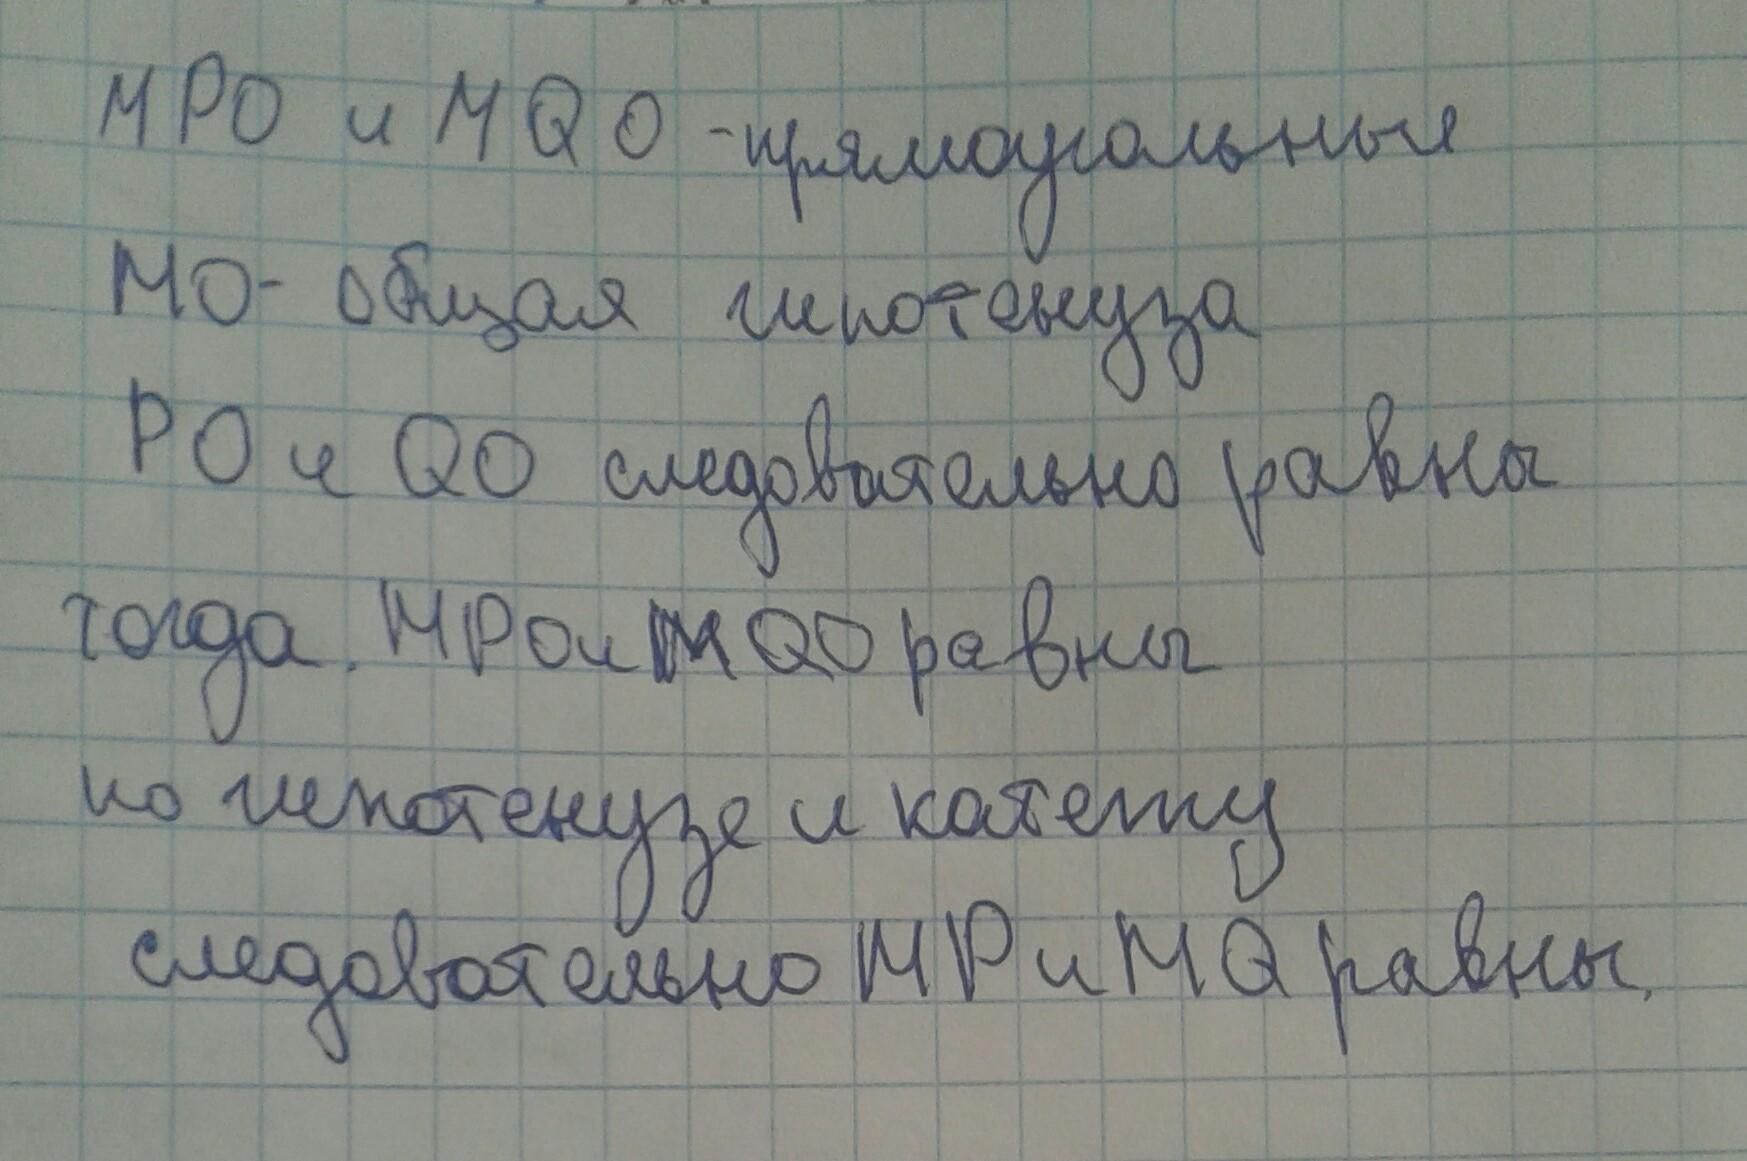 МРО и MQO - прямоугольные
МО - общая гипотенуза
РО и QO следовательно равны
тогда. МРО и MQO равны
по гипотенузе и катету
следовательно МР и MQ равны.